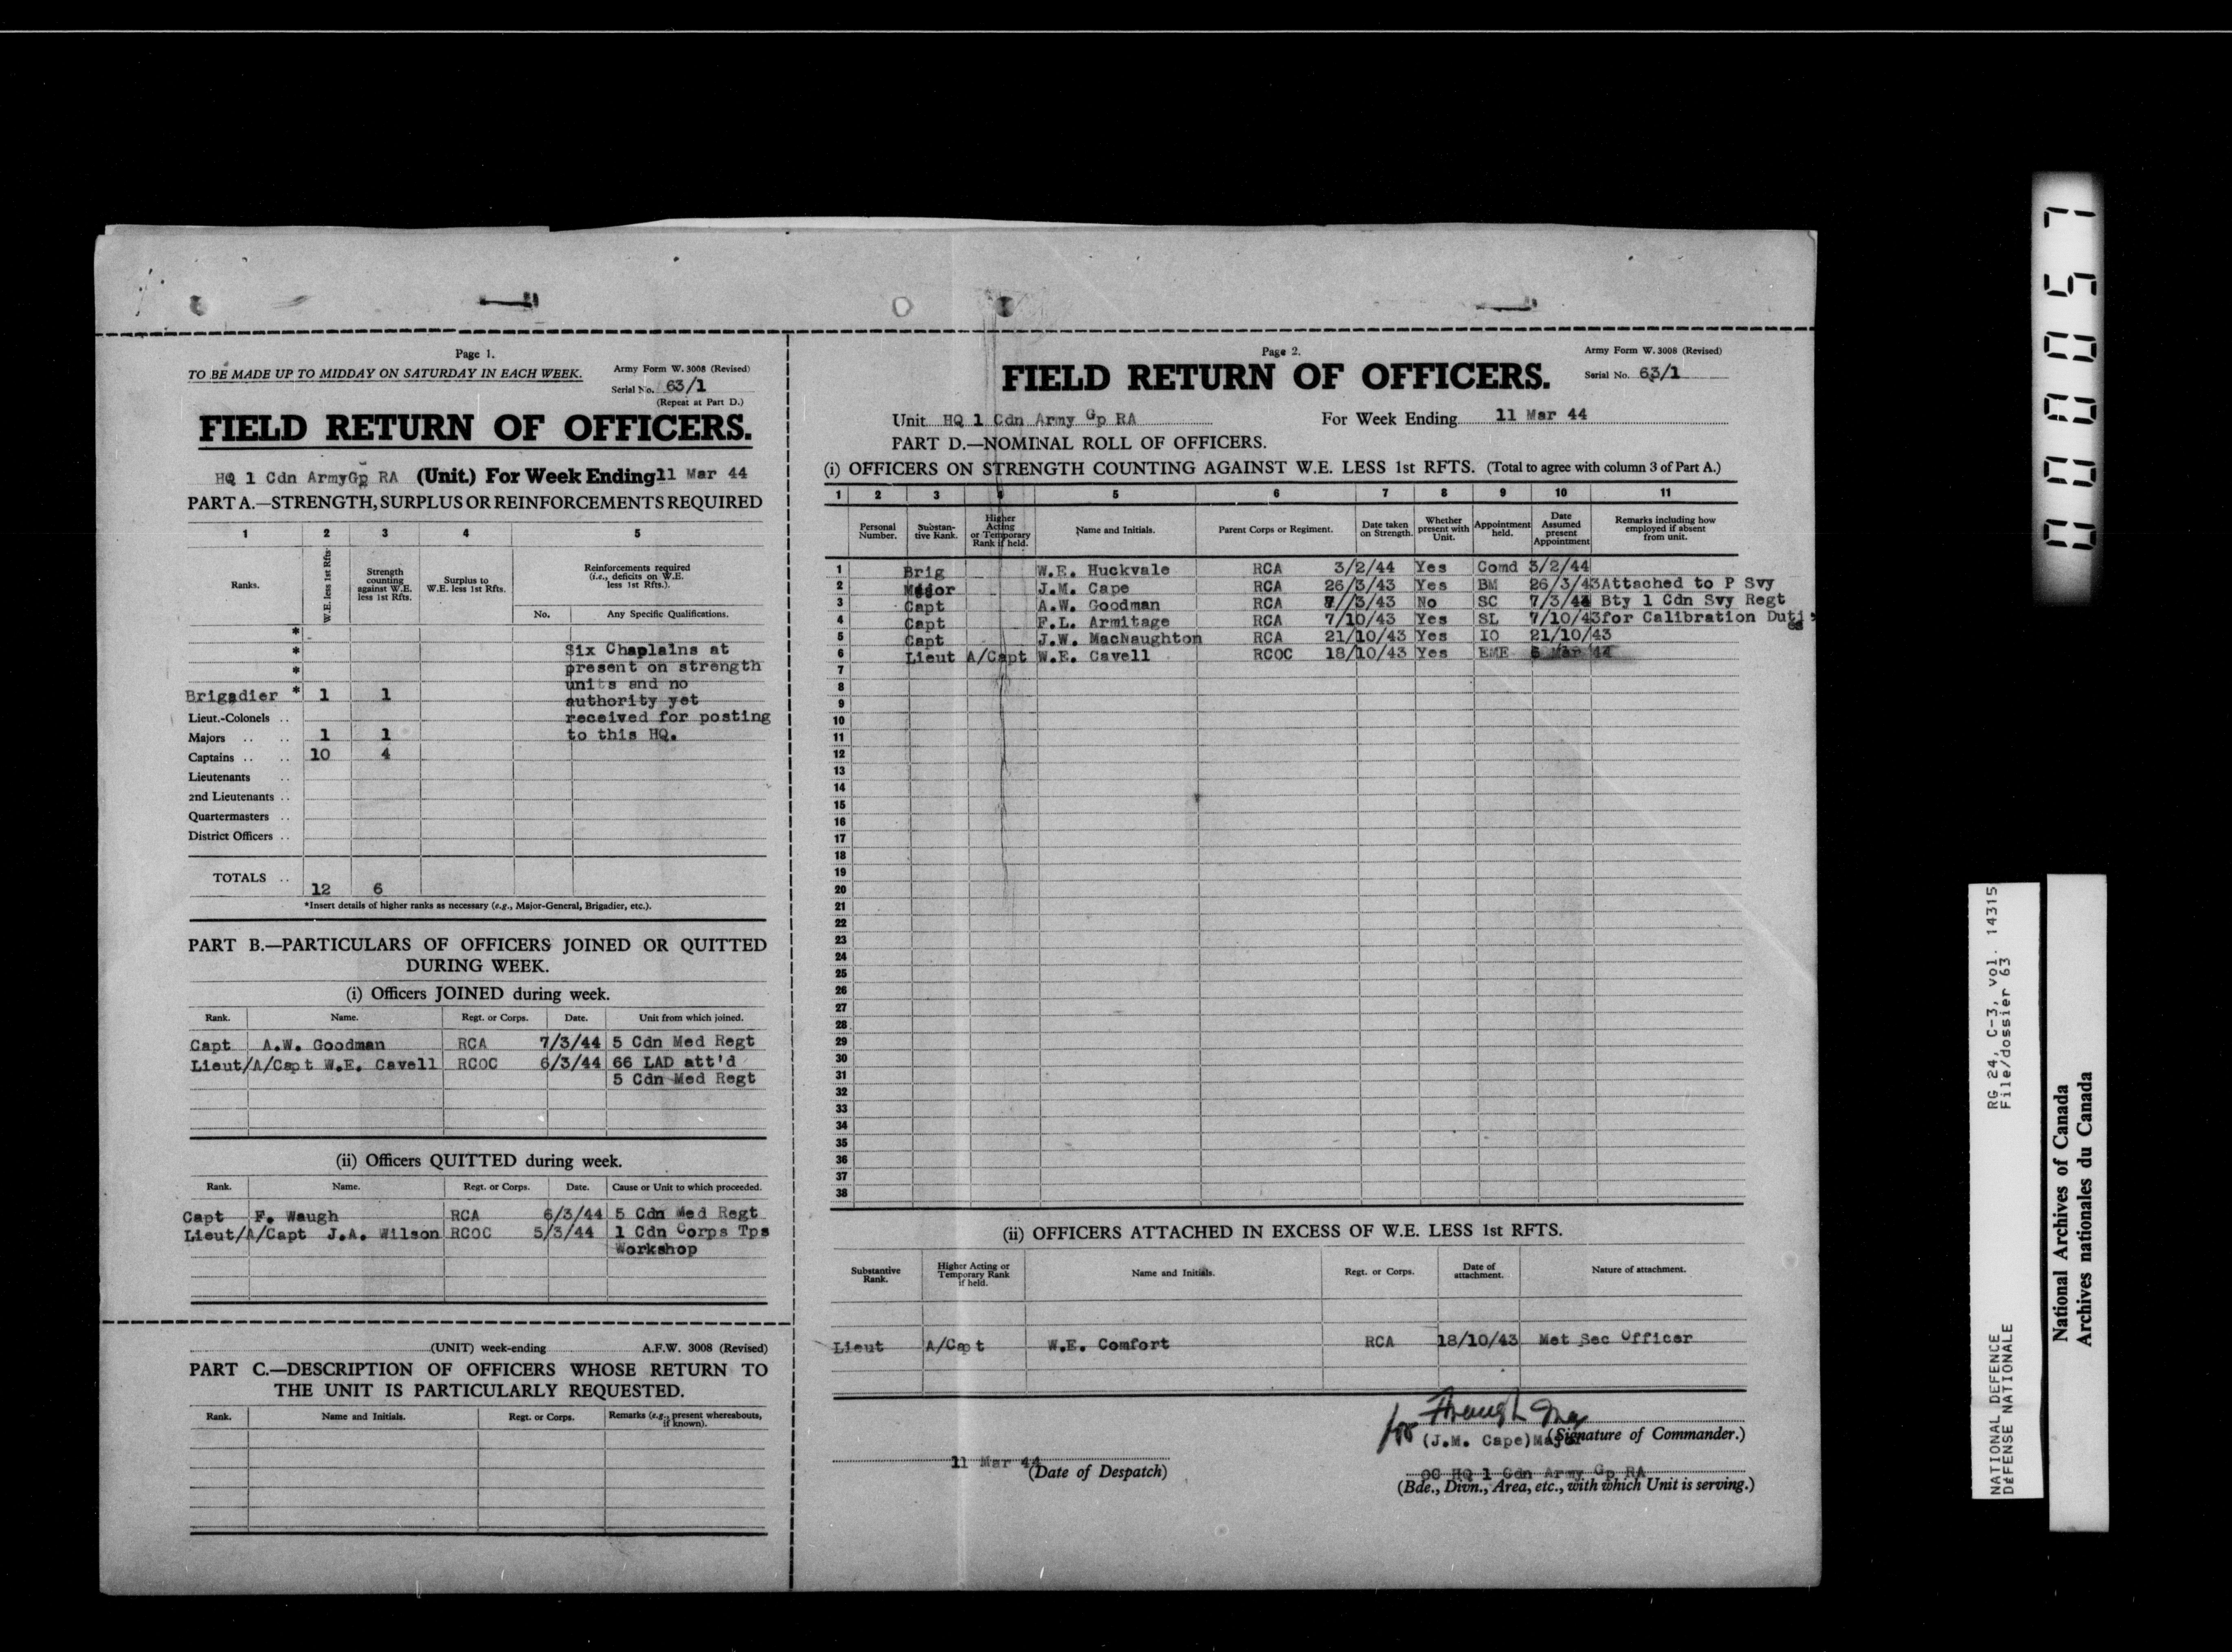 Page 1.
TO BE MADE UP TO MIDDAY ON SATURDAY IN EACH WEEK.
Army Form W. 3008 (Revised)
Serial No. 63/1
(Repeat at Part D.)
FIELD RETURN OF OFFICERS.
HQ 1 Cdn ArmyGp RA (Unit.) For Week Ending 11 Mar 44
PART A.—STRENGTH, SURPLUS OR REINFORCEMENTS REQUIRED
1 2 3 4 5
Ranks.
W.E. less 1st Rfts
Strength counting against W.E. less 1st Rfts.
Surplus to W.E. less 1st Rfts.
Reinforcements required (i.e., deficits on W.E. less 1st Rfts.).
No. Any Specific Qualifications.
*
* Six Chaplains at
* present on strength
units and no
Brigadier * 1 1 authority yet
Lieut.-Colonels .. received for posting
Majors .. .. 1 1 to this HQ.
Captains .. .. 10 4
Lieutenants ..
2nd Lieutenants ..
Quartermasters ..
District Officers ..
TOTALS .. 12 6
*Insert details of higher ranks as necessary (e.g., Major-General, Brigadier, etc.).
PART B.—PARTICULARS OF OFFICERS JOINED OR QUITTED
DURING WEEK.
(i) Officers JOINED during week.
Rank. Name. Regt. or Corps. Date. Unit from which joined.
Capt A.W. Goodman RCA 7/3/44 5 Cdn Med Regt
Lieut/A/Capt W.E. Cavell RCOC 6/3/44 66 LAD att'd
5 Cdn Med Regt
(ii) Officers QUITTED during week.
Rank. Name. Regt. or Corps. Date. Cause or Unit to which proceeded.
Capt F. Waugh RCA 6/3/44 5 Cdn Med Regt
Lieut/A/Capt J.A. Wilson RCOC 5/3/44 1 Cdn Corps Tps
Workshop
(UNIT) week-ending A.F.W. 3008 (Revised)
PART C.—DESCRIPTION OF OFFICERS WHOSE RETURN TO
THE UNIT IS PARTICULARLY REQUESTED.
Rank. Name and Initials. Regt. or Corps. Remarks (e.g., present whereabouts, if known).
Page 2.
Army Form W. 3008 (Revised)
FIELD RETURN OF OFFICERS.
Serial No. 63/1
Unit HQ 1 Cdn Army Gp RA For Week Ending 11 Mar 44
PART D.—NOMINAL ROLL OF OFFICERS.
(i) OFFICERS ON STRENGTH COUNTING AGAINST W.E. LESS 1st RFTS. (Total to agree with column 3 of Part A.)
1 2 3 4 5 6 7 8 9 10 11
Personal Number.
Substantive Rank.
Higher Acting or Temporary Rank if held.
Name and Initials.
Parent Corps or Regiment.
Date taken on Strength.
Whether present with Unit.
Appointment held.
Date Assumed present Appointment
Remarks including how employed if absent from unit.
1 Brig W.E. Huckvale RCA 3/2/44 Yes Comd 3/2/44
2 Major J.M. Cape RCA 26/3/43 Yes BM 26/3/43 Attached to P Svy
3 Capt A.W. Goodman RCA 7/3/43 No SC 7/3/44 Bty 1 Cdn Svy Regt
4 Capt F.L. Armitage RCA 7/10/43 Yes SL 7/10/43 for Calibration Duties
5 Capt J.W. MacNaughton RCA 21/10/43 Yes IO 21/10/43
6 Lieut A/Capt W.E. Cavell RCOC 18/10/43 Yes EME 6 Mar 44
7
8
9
10
11
12
13
14
15
16
17
18
19
20
21
22
23
24
25
26
27
28
29
30
31
32
33
34
35
36
37
38
(ii) OFFICERS ATTACHED IN EXCESS OF W.E. LESS 1st RFTS.
Substantive Rank. Higher Acting or Temporary Rank if held. Name and Initials. Regt. or Corps. Date of attachment. Nature of attachment.
Lieut A/Capt W.E. Comfort RCA 18/10/43 Met Sec Officer
for
(J.M. Cape)Major (Signature of Commander.)
11 Mar 44
(Date of Despatch)
OC HQ 1 Cdn Army Gp RA
(Bde., Divn., Area, etc., with which Unit is serving.)
000057
NATIONAL DEFENCE RG 24, C-3, vol. 14315
DÉFENSE NATIONALE File/dossier 63
National Archives of Canada
Archives nationales du Canada